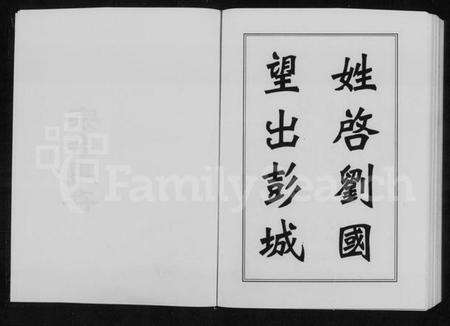 姓啓劉國
望出彭城
FamilySearch